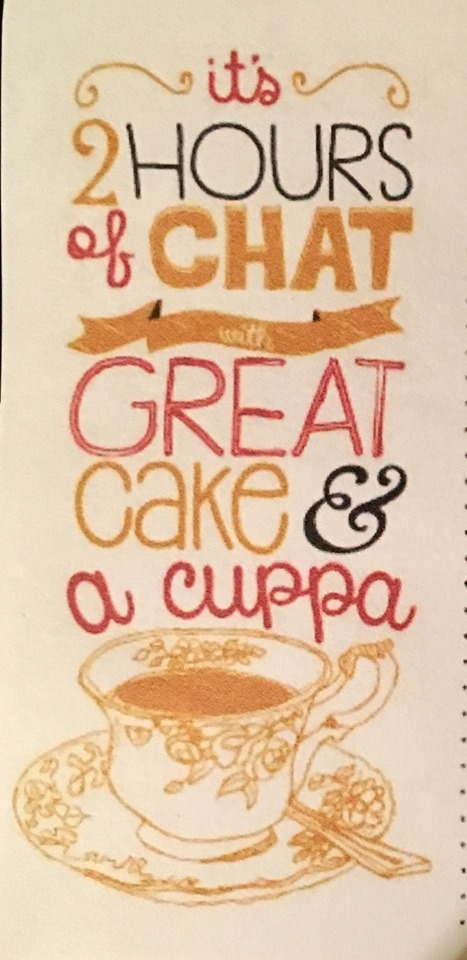 it's
2 HOURS
of CHAT
with
GREAT
cake &
a cuppa